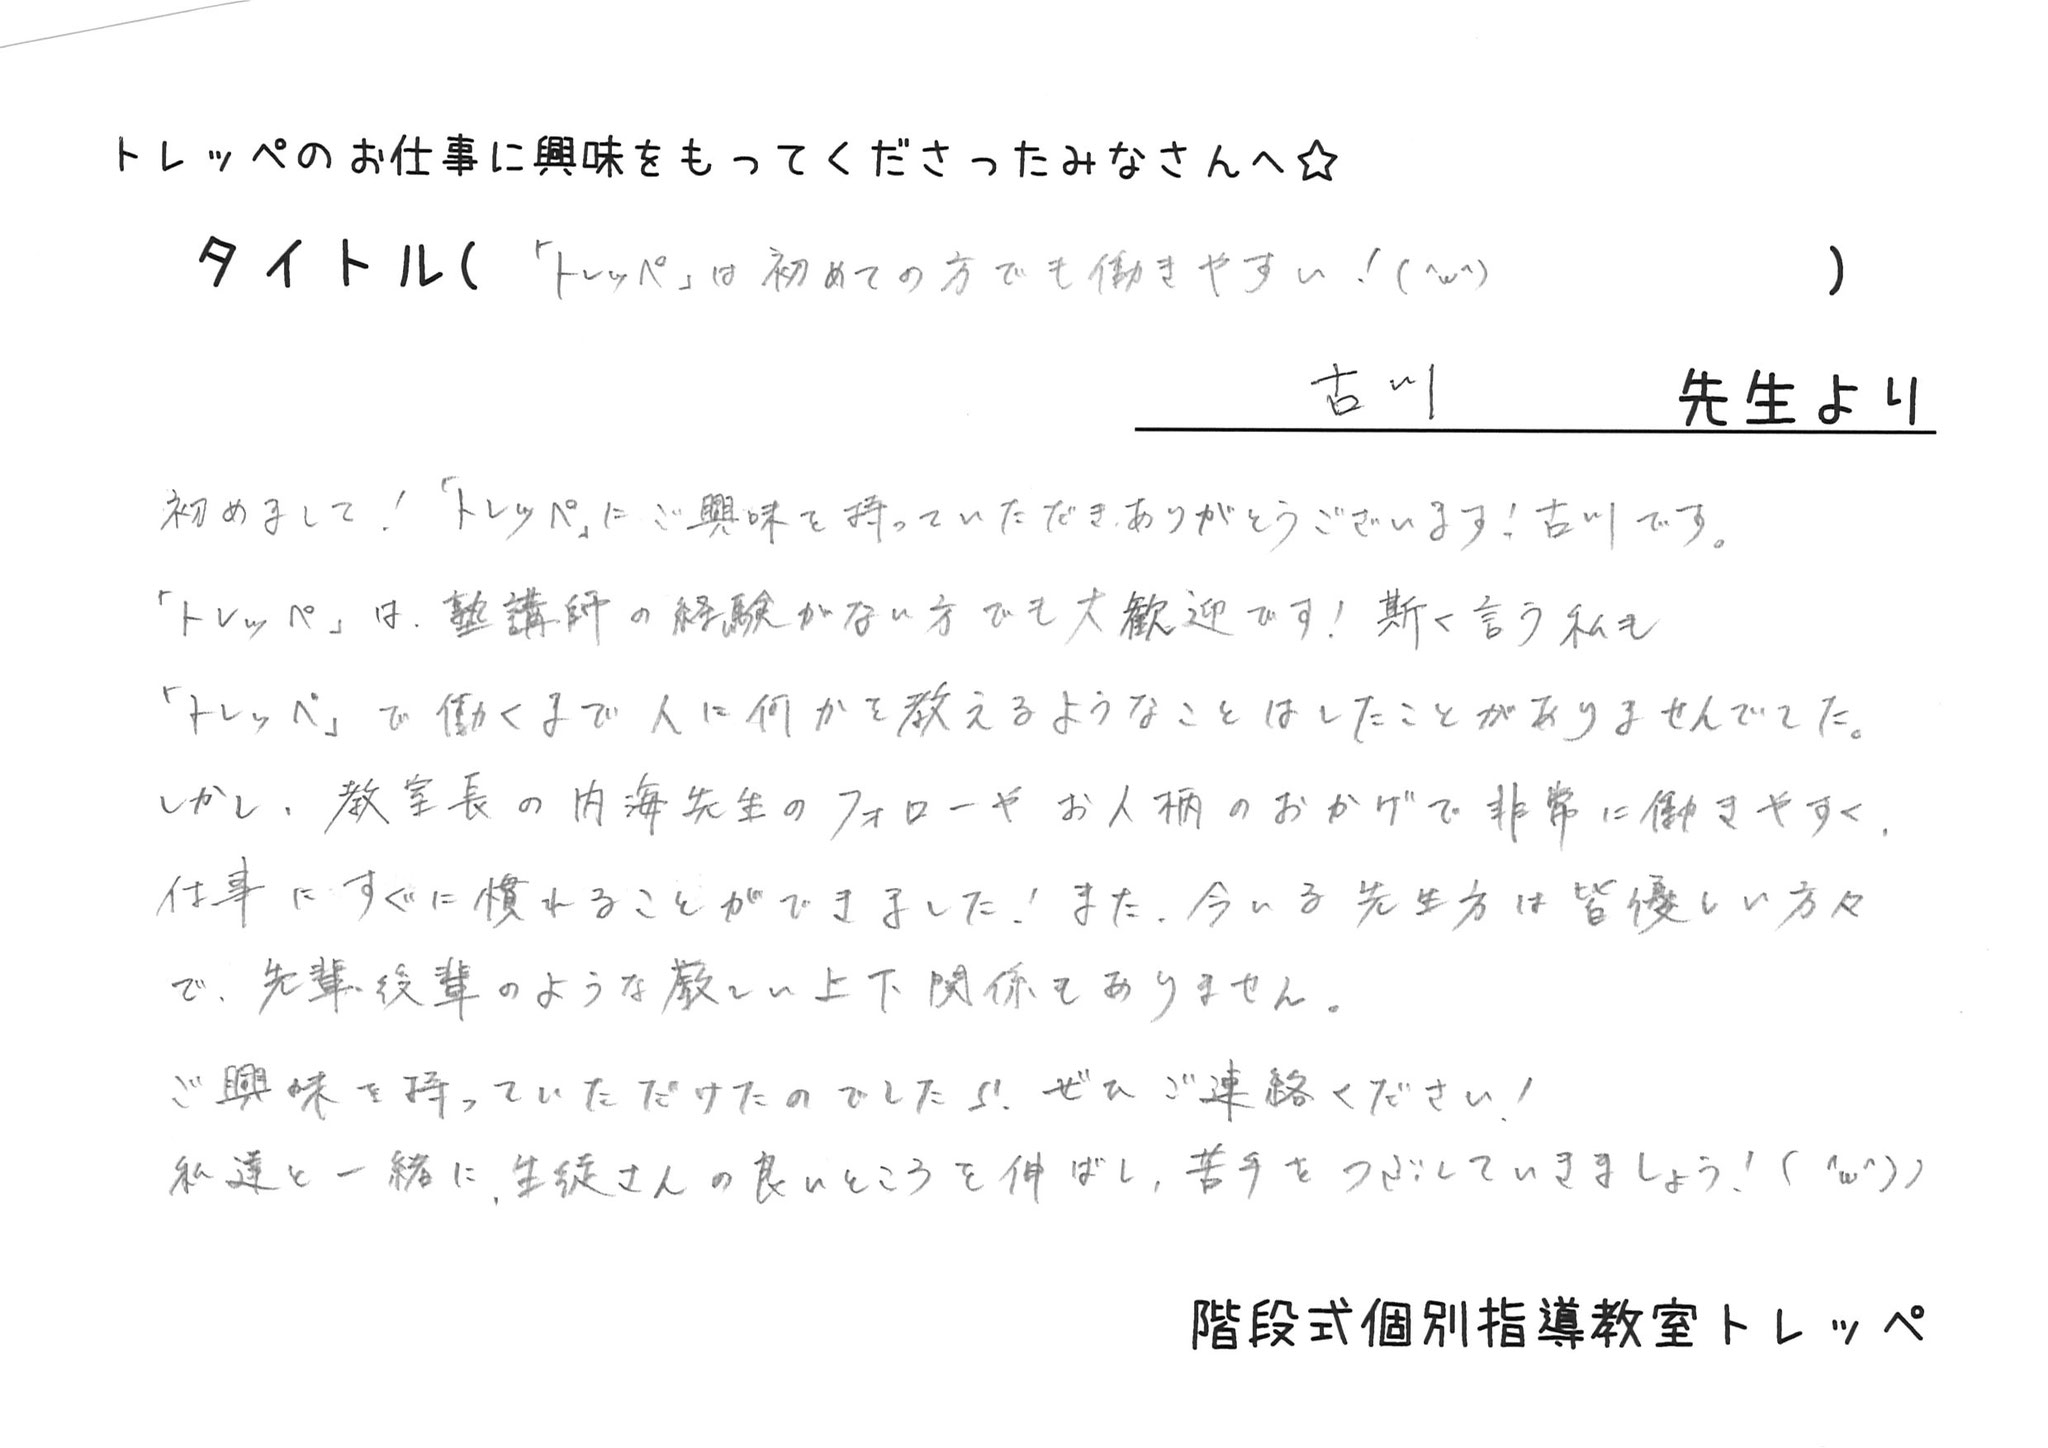 トレッペのお仕事に興味をもってくださったみなさんへ☆
タイトル(「トレッペ」は初めての方でも働きやすい!(^w^))
古川 先生より
初めまして!「トレッペ」にご興味を持っていただきありがとうございます!古川です。
「トレッペ」は、塾講師の経験がない方でも大歓迎です!斯く言う私も
「トレッペ」で働くまで人に何かを教えるようなことはしたことがありませんでした。
しかし、教室長の内海先生のフォローやお人柄のおかげで非常に働きやすく、
仕事にすぐに慣れることができました!また、今いる先生方は皆優しい方々
で、先輩・後輩のような厳しい上下関係もありません。
ご興味を持っていただけたのでしたら、ぜひご連絡ください!
私達と一緒に、生徒さんの良いところを伸ばし、苦手をつぶしていきましょう!(^w^)ノ
階段式個別指導教室トレッペ